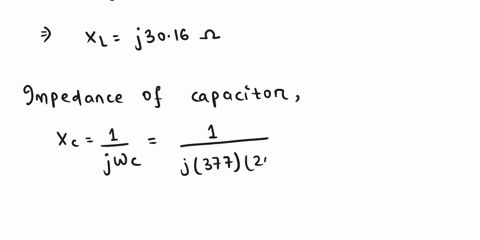 ⇒ XL = j30.16 Ω
Impedance of capacitor,
Xc = 1/jωc = 1/j(377)(2